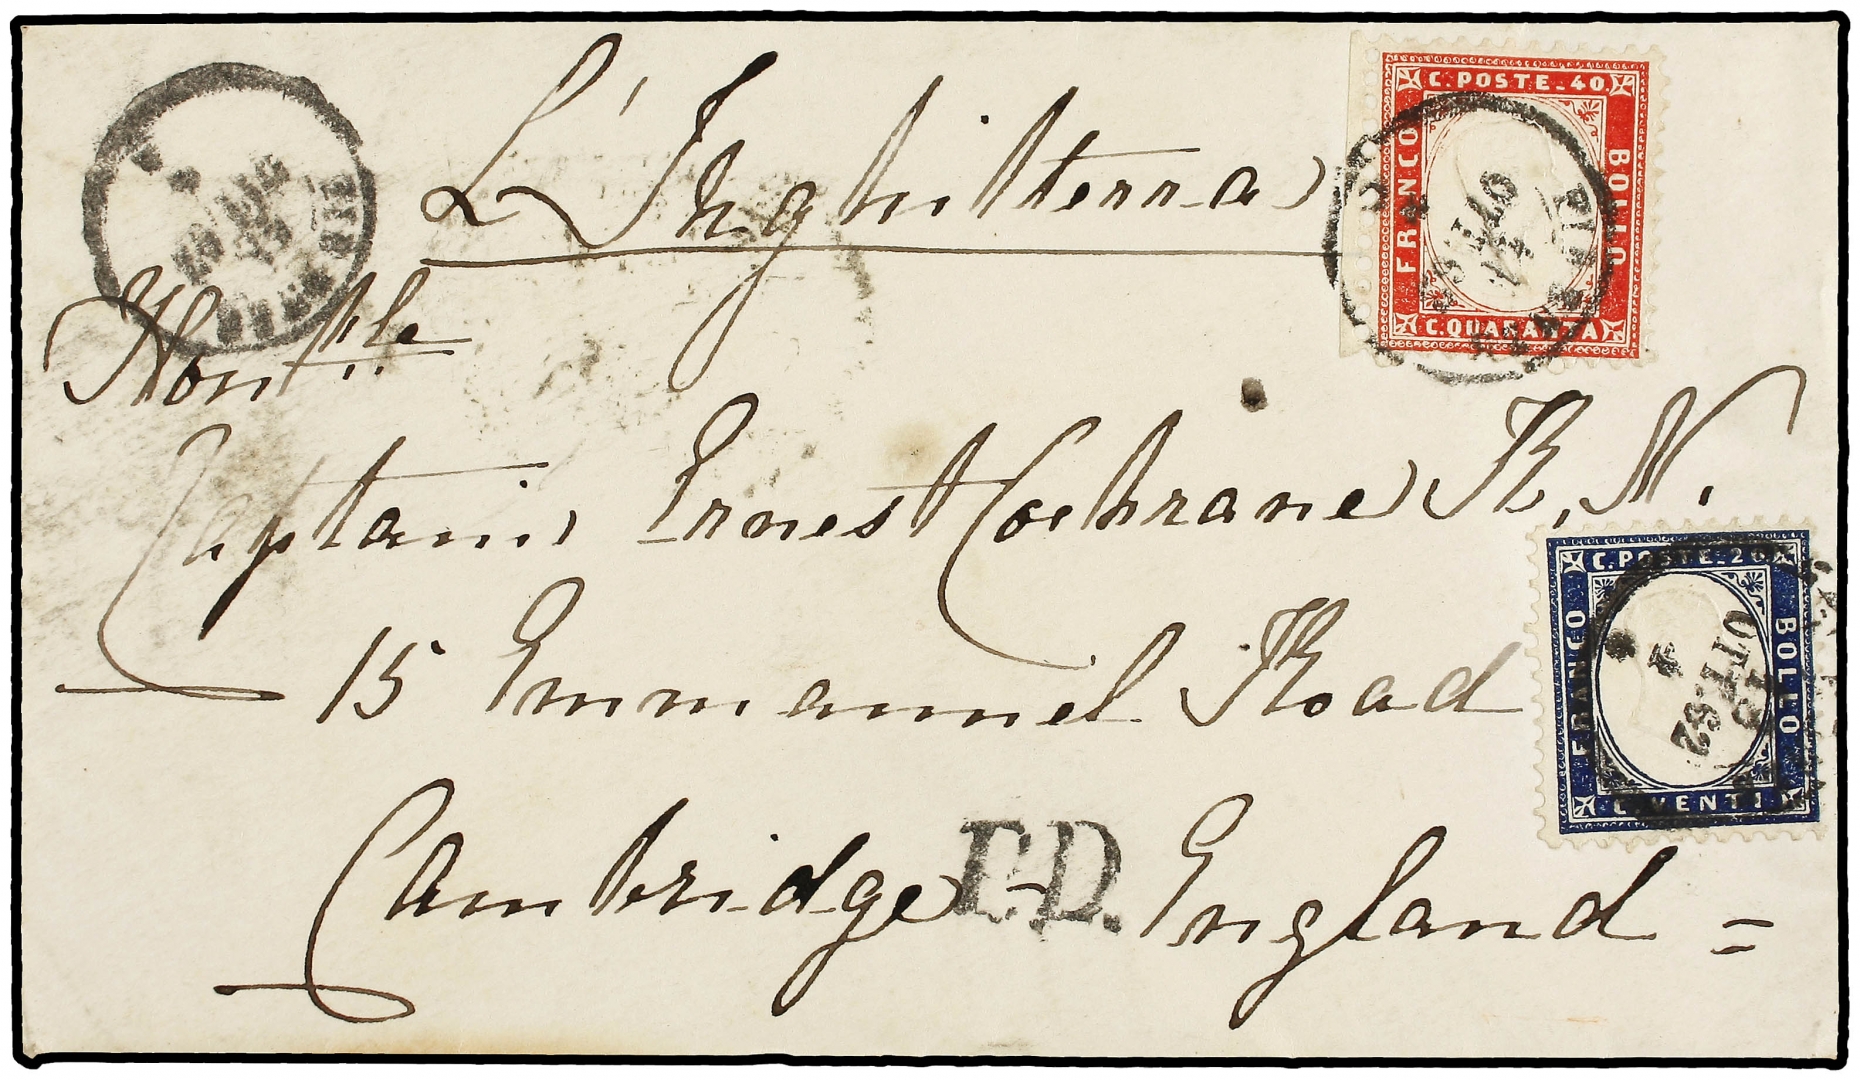 L'Inghilterra
C. POSTE. 40.
FRANCO
BOLLO
C. QUARANTA
FIRENZE
Honble
Captain Ernest Cochrane R. N.
15 Emmanuel Road
C. POSTE. 20
FRANCO
BOLLO
C. VENTI
Cambridge - England =
P.D.